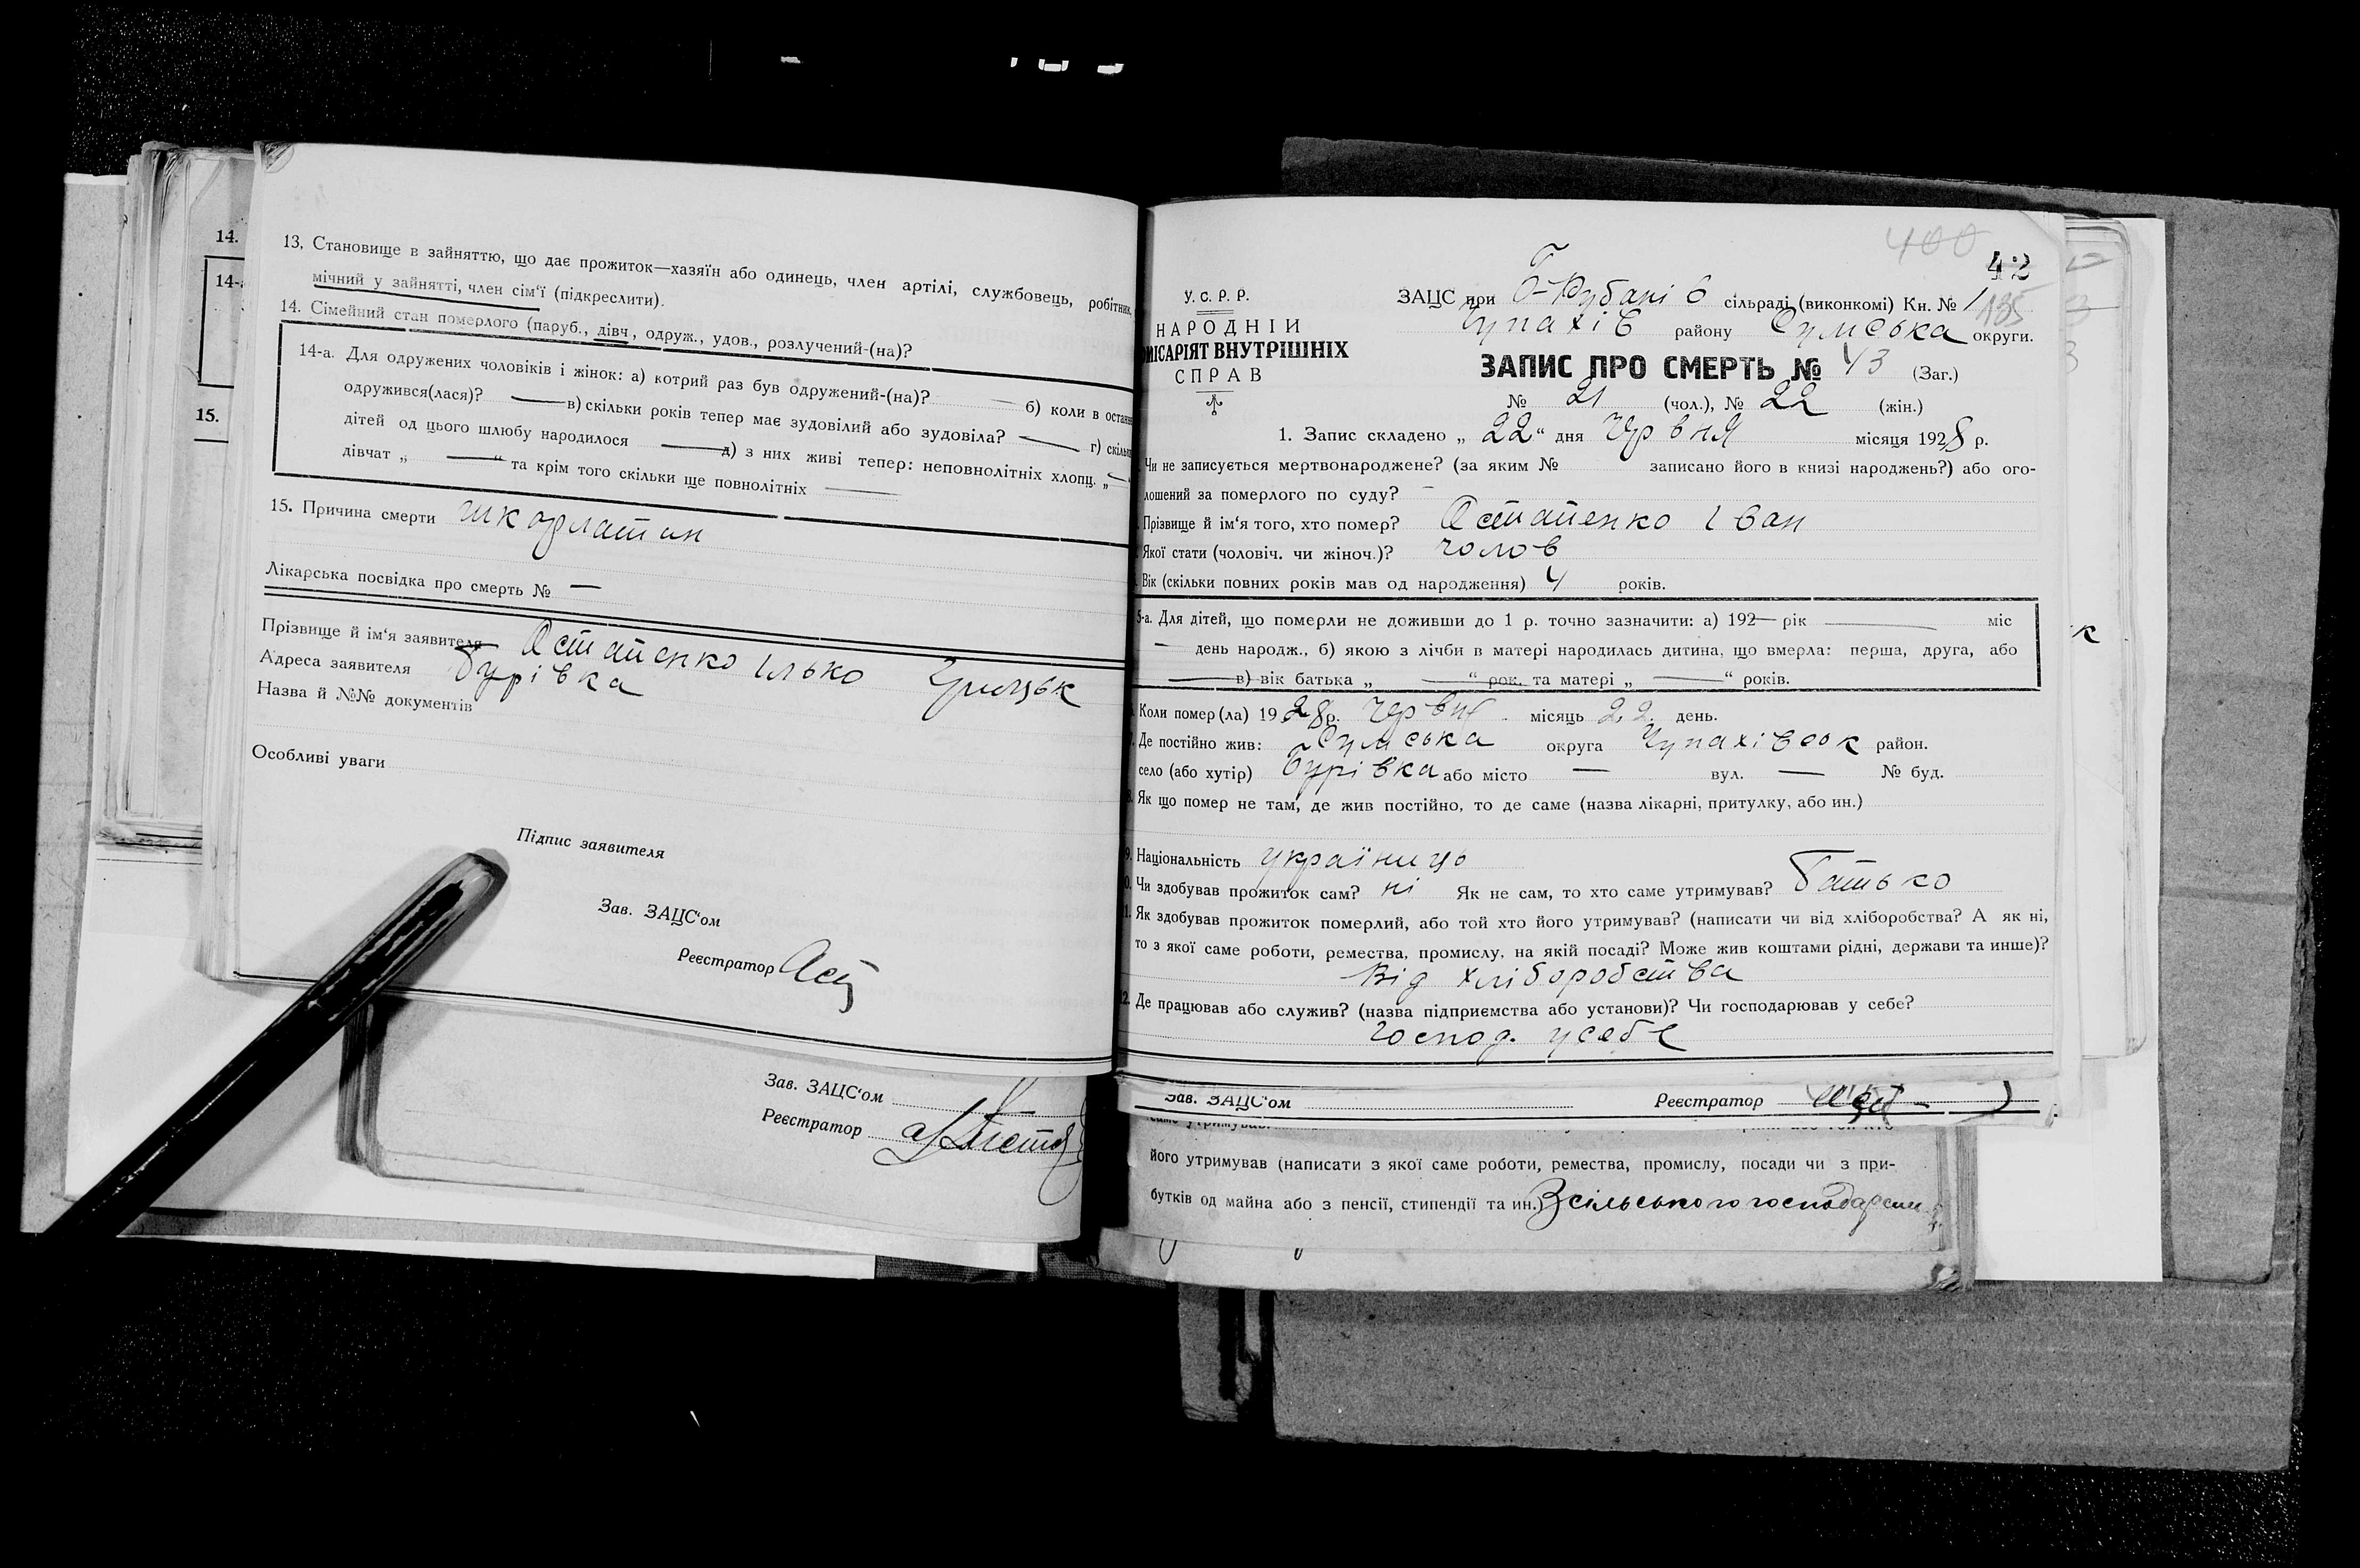 14.
14-а
15.
13. Становище в зайняттю, що дає прожиток—хазяїн або одинець, член артілі, службовець, робітник,
мічний у зайнятті, член сім'ї (підкреслити).
14. Сімейний стан померлого (паруб., дівч., одруж., удов., розлучений-(на)?
14-а. Для одружених чоловіків і жінок: а) котрий раз був одружений-(на)? — б) коли в останн
одружився(лася)? — в) скільки років тепер має зудовілий або зудовіла? — г) скільк
дітей од цього шлюбу народилося — д) з них живі тепер: неповнолітніх хлопц. „—
дівчат „ — “ та крім того скільки ще повнолітніх —
15. Причина смерти шкарлатин
Лікарська посвідка про смерть № —
Прізвище й ім'я заявителя Остапенко Ілько Грицьк
Адреса заявителя Бурівка
Назва й №№ документів
Особливі уваги
Підпис заявителя
Зав. ЗАЦС'ом
Реєстратор
Зав. ЗАЦС'ом
Реєстратор
400
42
135
У. С. Р. Р.
НАРОДНІЙ
МІСАРІЯТ ВНУТРІШНІХ
СПРАВ
ЗАЦС при Б-Рубані в сільраді (виконкомі) Кн. № 1
Чупахів району Сумська округи.
ЗАПИС ПРО СМЕРТЬ № 43 (Заг.)
№ 21 (чол.), № 22 (жін.)
1. Запис складено „ 22 “ дня Червня місяця 1928 р.
Чи не записується мертвонароджене? (за яким № записано його в книзі народжень?) або ого-
лошений за померлого по суду? —
Прізвище й ім'я того, хто помер? Остапенко Іван
Якої стати (чоловіч. чи жіноч.)? Чолов
Вік (скільки повних років мав од народження) 4 років.
5-а. Для дітей, що померли не доживши до 1 р. точно зазначити: а) 192— рік — міс
— день народж., б) якою з лічби в матері народилась дитина, що вмерла: перша, друга, або
— в) вік батька „ — “ рок. та матері „ — “ років.
Коли помер(ла) 1928 р. Червня місяць 22 день.
Де постійно жив: Сумська округа Чупахівсок район.
село (або хутір) Бурівка або місто — вул. — № буд.
Як що помер не там, де жив постійно, то де саме (назва лікарні, притулку, або ин.)
9. Національність україниць
Чи здобував прожиток сам? ні Як не сам, то хто саме утримував? Батько
11. Як здобував прожиток померлий, або той хто його утримував? (написати чи від хліборобства? А як ні,
то з якої саме роботи, ремества, промислу, на якій посаді? Може жив коштами рідні, держави та инше)?
Від хліборобства
12. Де працював або служив? (назва підприємства або установи)? Чи господарював у себе?
Господ. усебе
Зав. ЗАЦС'ом Реєстратор
його утримував (написати з якої саме роботи, ремества, промислу, посади чи з при-
бутків од майна або з пенсії, стипендії та ин.) З сільського